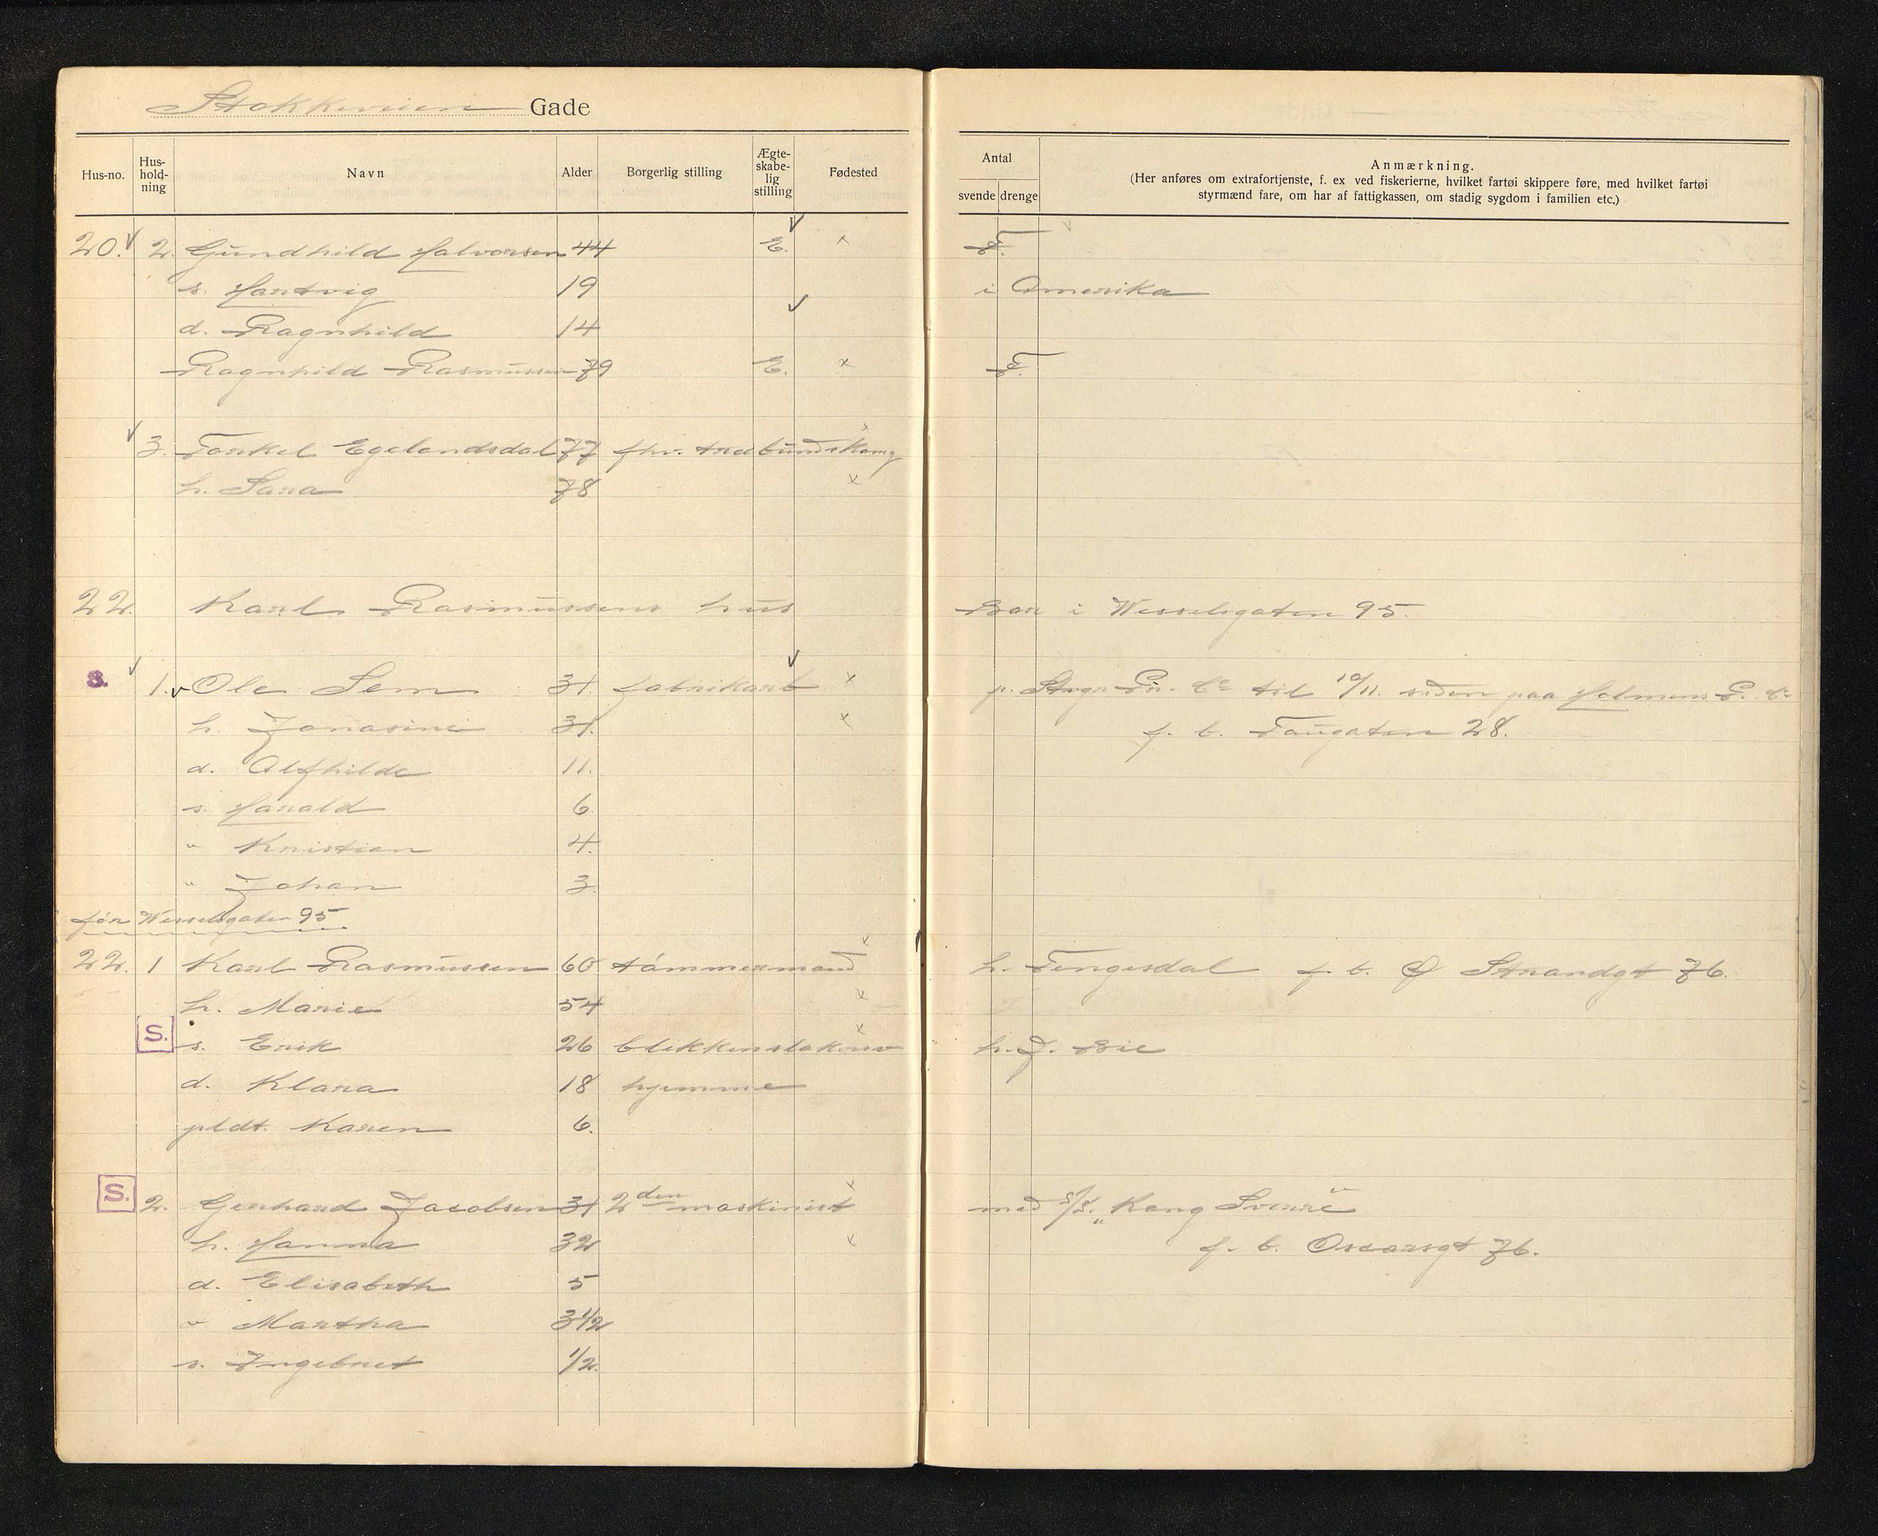 Stokkeveien Gade
Hus-no. Hus-hold-ning Navn Alder Borgerlig stilling Ægte-skabe-lig stilling Fødested
Antal svende drenge
Anmærkning.
(Her anføres om extrafortjenste, f. ex ved fiskerierne, hvilket fartøi skippere føre, med hvilket fartøi
styrmænd fare, om har af fattigkassen, om stadig sygdom i familien etc.)
20. 2. Gundhild Halvorsen 44 E. x F.
s. Hartvig 19 i Amerika
d. Ragnhild 14
Ragnhild Rasmussen 79 E. x F.
3. Torkel Egelandsdal 77 fhv. x
h. Sara 78 x
22. Karl Rasmussens hus Bor i Wesselsgaten 95.
S. 1. Ole Sem 31. fabrikarb x p. Stvgr Pr. Co til 10/11. siden paa Holmens P. Co
h. Jonasine 31. x f. b. Taugaten 28.
d. Alfhilde 11.
s. Harald 6.
" Kristian 4.
" Johan 3.
før Wesselsgaten 95
22. 1 Karl Rasmussen 60 tømmermand x h. Tengesdal f. b. Ø Strandgt 76.
h. Marie 54 x
S. s. Erik 26 blikkenslakersv x h. J. Bie
d. Klara 18 hjemme
pldt. Karen 6.
S. 2. Gerhard Jacobsen 31 2den maskinist x med s/s. "Kong Sverre"
h. Hanna 32 x f. b. Oscarsgt 76.
d. Elisabeth 5
" Martha 3 1/2
s. Ingebret 1/2.